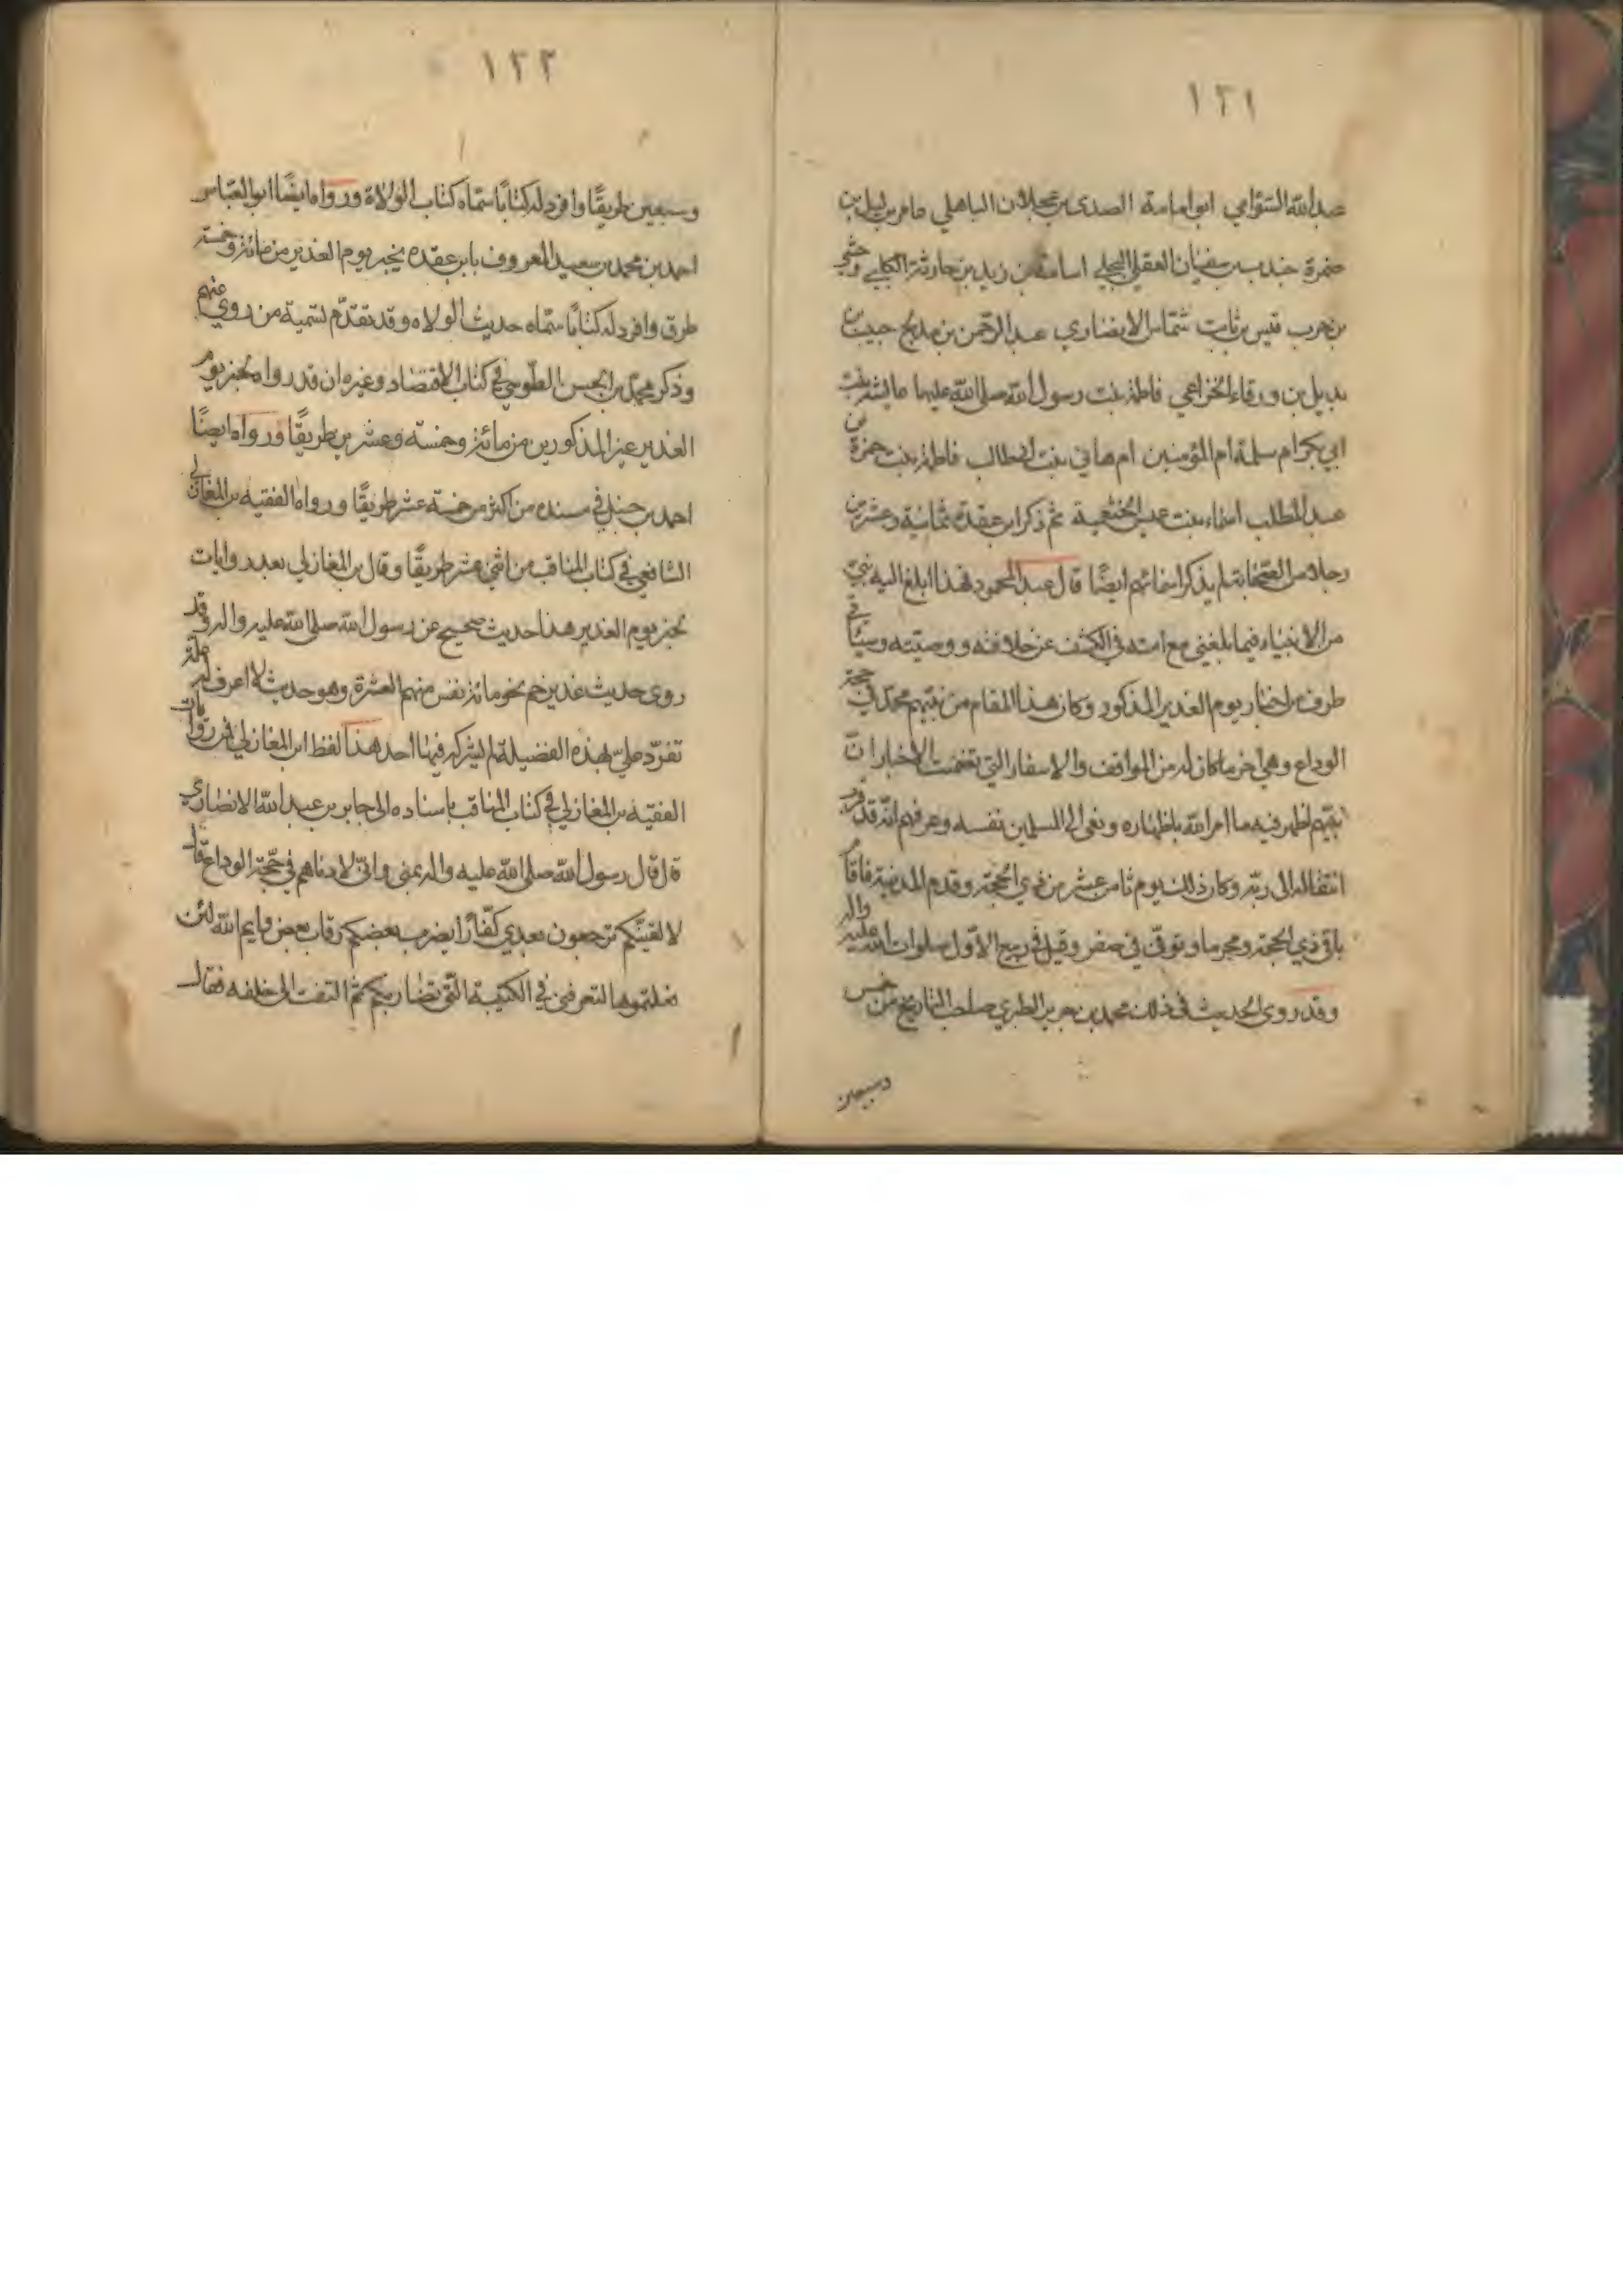 ١٣١
عبدالله السوامي ابو امامة الصدى بن عجلان الباهلي عامر بن ليلى بن
ضمرة جندب بن سفيان العقلي البجلي اسامة بن زيد بن حارثة الكلبي وحشي
بن حرب قيس بن ثابت شماس الانصاري عبد الرحمن بن مدلج حبيب بن
بديل بن ورقاء الخزاعي فاطمة بنت رسول الله صلى الله عليها عايشة بنت
ابي بكر ام سلمة ام المؤمنين ام هاني بنت ابيطالب فاطمة بنت حمزة بن
عبد المطلب اسماء بنت عميس الخثعمية ثم ذكر ابن عقدة ثمانية وعشرين
رجلا من الصحابة لم يذكر اسمائهم ايضًا قال عبد المحمود فهذا ابلغ اليه نبي
من الانبياء فيما بلغني مع امته في الكشف عن خلافته ووصيته وسيأتي
طرف من اخبار يوم الغدير المذكور وكان هذا المقام من نبيهم محمد في حجة
الوداع وهي اخر ما كان له من المواقف والاسفار التي تضمنت الاخبار انّ
نبيهم اظهر فيه ما امر الله باظهاره ونعى الى المسلمين نفسه وعرفهم انه قد قرب
انتقاله الى ربه وكان ذلك يوم ثامن عشر من ذي الحجة وقدم المدينة فاقام
باقي ذي الحجة ومحرما وتوفي في صفر وقيل في ربيع الاول صلوات الله عليه واله
وقد روى الحديث في ذلك محمد بن جرير الطبري صاحب التاريخ من خمس
وسبعين
١٣٢
وسبعين طريقًا وافرد له كتابًا سماه كتاب الولاة ورواه ايضًا ابو العباس
احمد بن محمد بن سعيد المعروف بابن عقده بخبر يوم الغدير من مائة وخمسة
طرق وافرد له كتابًا سماه حديث الولاه وقد تقدّم تسمية من روي عنهم
وذكر محمد بن الحسن الطوسي في كتاب الاقتصاد وغيره ان قد رواه بخبر يوم
الغدير غير المذكورين من مائة وخمسة وعشرين طريقًا ورواه ايضًا
احمد بن حنبل في مسنده من اكثر من خمسة عشر طريقًا ورواه الفقيه بن المغازلي
الشافعي في كتاب المناقب من اثني عشر طريقًا وقال بن المغازلي بعد روايات
بخبر يوم الغدير هذا حديث صحيح عن رسول الله صلى الله عليه واله وقد
روى حديث غدير خم نحو مائة نفس منهم العشرة وهو حديث لا اعرف له علة
تفرّد علي بهذه الفضيلة لم يشركه فيها احد هذا لفظ ابن المغازلي فمن روايات
الفقيه بن المغازلي في كتاب المناقب باسناده الى جابر بن عبد الله الانصاري
قال قال رسول الله صلى الله عليه واله بمنى واني لادناهم في حجة الوداع قال
لا لفينّكم ترجعون بعدي كفّارًا يضرب بعضكم رقاب بعض وايم الله لئن
فعلتموها لتعرفني في الكتيبة التي تضاربكم ثم التفت الى خلفه فقال